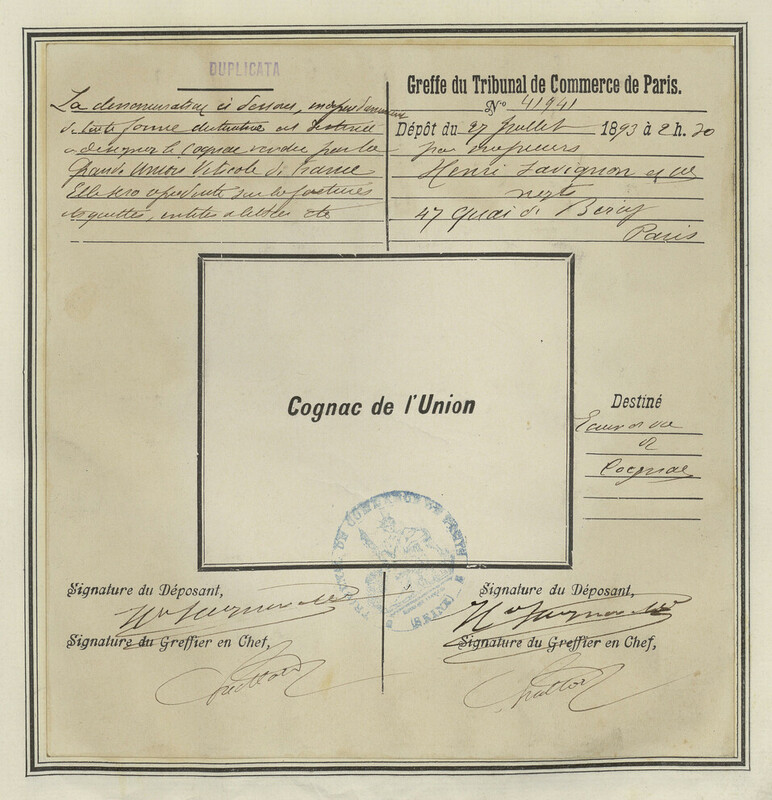 DUPLICATA
La dénomination ci dessous, indépendamment
de toute forme distinctive est destinée
à désigner le Cognac vendu par la
Grande Union Viticole de France
Elle sera apposée sur les factures
étiquettes, entêtes de lettres etc
Greffe du Tribunal de Commerce de Paris.
N° 41941
Dépôt du 27 Juillet 1893 à 2 h. 20
par messieurs
Henri Savignon et Cie
negts
47 quai de Bercy
Paris
Cognac de l'Union
Destiné
Eaux de vie
de
Cognac
TRIBUNAL DE COMMERCE DE PARIS
(SEINE)
Signature du Déposant,
Signature du Greffier en Chef,
Signature du Déposant,
Signature du Greffier en Chef,